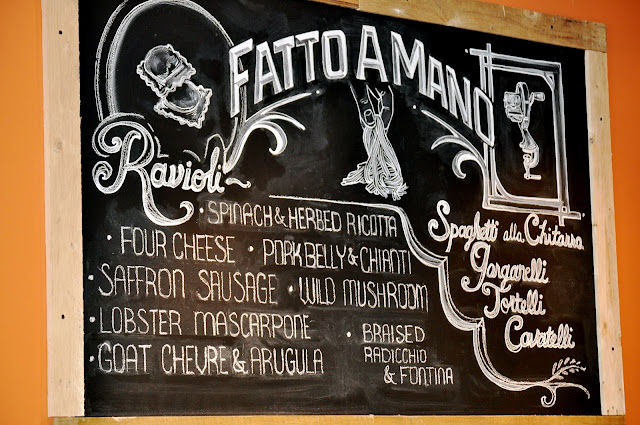 FATTO A MANO
Ravioli
• SPINACH & HERBED RICOTTA
• FOUR CHEESE • PORK BELLY & CHIANTI
• SAFFRON SAUSAGE • WILD MUSHROOM
• LOBSTER MASCARPONE
• GOAT CHEVRE & ARUGULA
• BRAISED
RADICCHIO
& FONTINA
Spaghetti alla Chitarra
Garganelli
Tortelli
Cavatelli